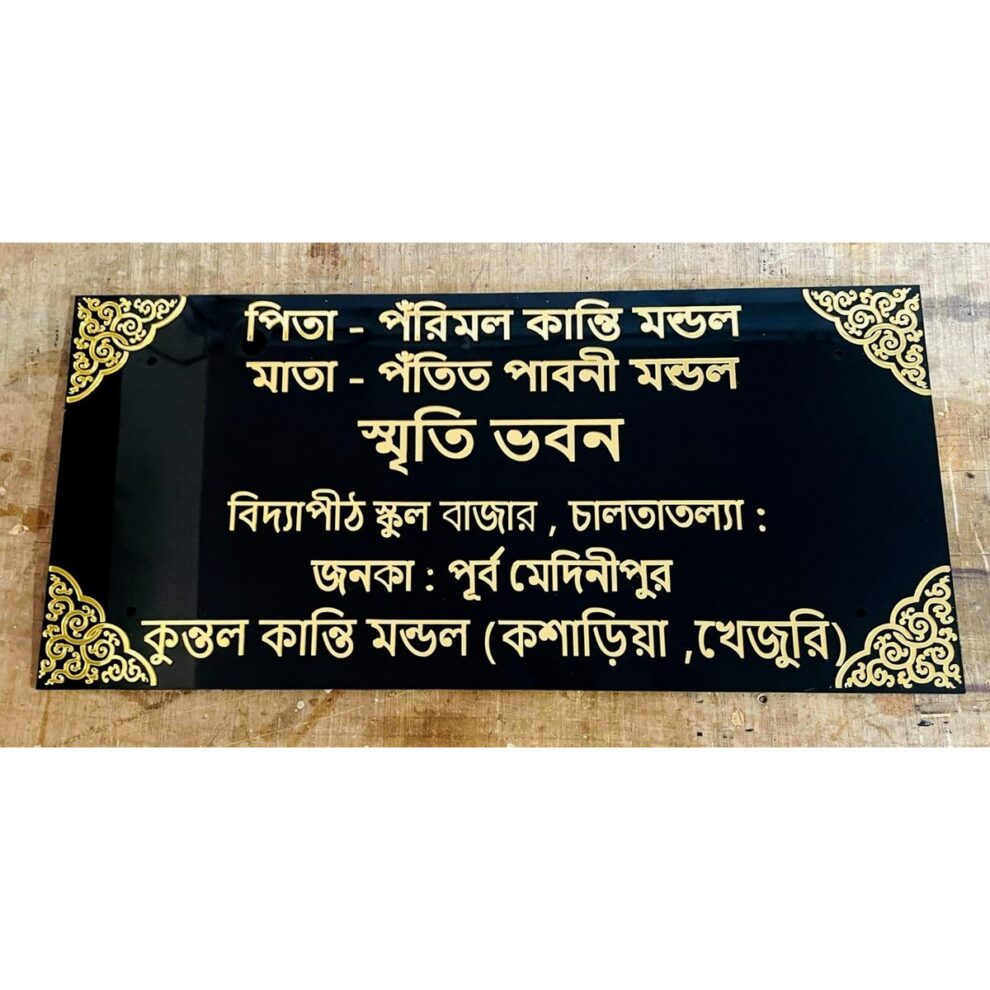 পিতা - পঁরিমল কান্তি মন্ডল
মাতা - পঁতিত পাবনী মন্ডল
স্মৃতি ভবন
বিদ্যাপীঠ স্কুল বাজার , চালতাতল্যা :
জনকা : পূর্ব মেদিনীপুর
কুন্তল কান্তি মন্ডল (কশাড়িয়া ,খেজুরি)